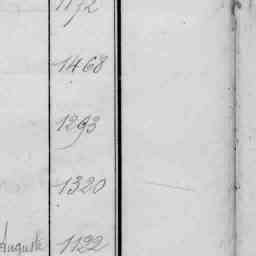 1172
1468
1293
1320
Auguste 1122